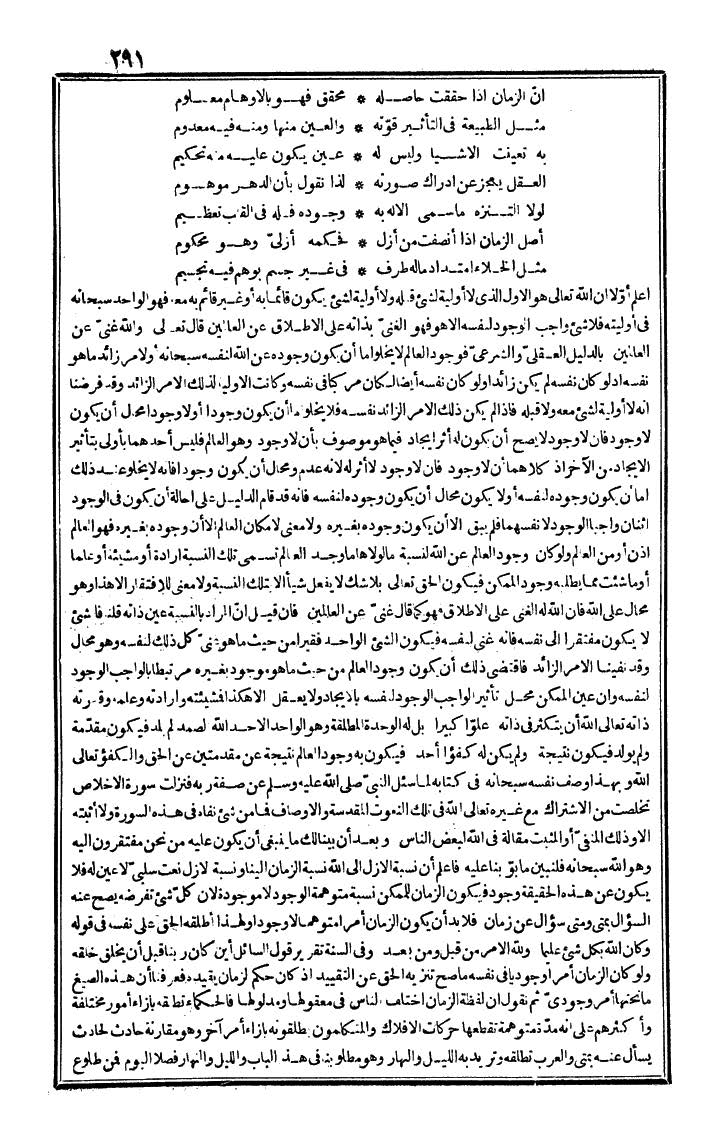 ٢٩١
انّ الزمان اذا حققت حاصله * محقق فهو بالاوهام معلوم
مثل الطبيعة فى التأثير قوّته * والعين منها ومنه فيه معدوم
به تعينت الاشيا وليس له * عين يكون عليه منه تحكيم
العقل يعجز عن ادراك صورته * لذا نقول بأن الدهر موهوم
لولا التنزه ما سمى الاله به * وجوده فله فى القلب تعظيم
أصل الزمان اذا أنصفت من أزل * فحكمه أزلىّ وهو محكوم
مثل الخلاء امتداد ماله طرف * فى غير جسم بوهم فيه تجسيم
اعلم أوّلا ان الله تعالى هو الاول الذى لا أولية لشئ قبله ولا أولية لشئ يكون قائما به أو غير قائم به معه فهو الواحد سبحانه
فى أوليته فلا شئ واجب الوجود لنفسه الا هو فهو الغنىّ بذاته على الاطلاق عن العالمين قال تعالى والله غنىّ عن
العالمين بالدليل العقلىّ والشرعىّ فوجود العالم لا يخلو اما أن يكون وجوده عن الله لنفسه سبحانه أولامر زائد ما هو
نفسه اذ لو كان نفسه لم يكن زائدا ولو كان نفسه أيضا لكان مركبا فى نفسه وكانت الاولية لذلك الامر الزائد وقد فرضنا
انه لا أولية لشئ معه ولا قبله فاذا لم يكن ذلك الامر الزائد نفسه فلا يخلو اما أن يكون وجودا أو لا وجودا محال أن يكون
لا وجود فان لا وجود لا يصح أن يكون له أثر ايجاد فيما هو موصوف بأن لا وجود وهو العالم فليس أحدهما بأولى بتأثير
الايجاد من الآخر اذ كلاهما أن لا وجود فان لا وجود لا أثر له لانه عدم ومحال أن يكون وجودا فانه لا يخلو عند ذلك
اما أن يكون وجوده لنفسه أو لا يكون محال أن يكون وجوده لنفسه فانه قد قام الدليل على احالة أن يكون فى الوجود
اثنان واجبا الوجود لانفسهما فلم يبق الا أن يكون وجوده بغيره ولا معنى لامكان العالم الا أن وجوده بغيره فهو العالم
اذن أو من العالم ولو كان وجود العالم عن الله لنسبة ما لولاها ما وجد العالم تسمى تلك النسبة ارادة أو مشيئة أو علما
أو ما شئت مما يطلبه وجود الممكن فيكون الحق تعالى بلا شك لا يفعل شيأ الا بتلك النسبة ولا معنى للافتقار الا هذا وهو
محال على الله فان الله له الغنى على الاطلاق فهو كما قال غنىّ عن العالمين فان قيل ان المراد بالنسبة عين ذاته قلنا فالشئ
لا يكون مفتقرا الى نفسه فانه غنى لنفسه فيكون الشئ الواحد فقيرا من حيث ما هو غنىّ كل ذلك لنفسه وهو محال
وقد نفينا الامر الزائد فاقتضى ذلك أن يكون وجود العالم من حيث ما هو موجود بغيره مرتبطا بالواجب الوجود
لنفسه وان عين الممكن محل تأثير الواجب الوجود لنفسه بالايجاد ولا يعقل الا هكذا فمشيئته وارادته وعلمه وقدرته
ذاته تعالى الله أن يتكثر فى ذاته علوّا كبيرا بل له الوحدة المطلقة وهو الواحد الاحد الله الصمد لم يلد فيكون مقدّمة
ولم يولد فيكون نتيجة ولم يكن له كفؤا أحد فيكون به وجود العالم نتيجة عن مقدمتين عن الحق والكفؤ تعالى
الله وبهذا وصف نفسه سبحانه فى كتابه لما سئل النبىّ صلى الله عليه وسلم عن صفة ربه فنزلت سورة الاخلاص
تخلصت من الاشتراك مع غيره تعالى الله فى تلك النعوت المقدسة والاوصاف فما من شئ نفاه فى هذه السورة ولا أثبته
الا وذلك المنفىّ أو المثبت مقالة فى الله لبعض الناس وبعد أن بينا لك ما ينبغى أن يكون عليه من نحن مفتقرون اليه
وهو الله سبحانه فلنبين ما بوّبنا عليه فاعلم أن نسبة الازل الى الله نسبة الزمان الينا ونسبة الازل نعت سلبىّ لا عين له فلا
يكون عن هذه الحقيقة وجود فيكون الزمان للممكن نسبة متوهمة الوجود لا موجودة لان كل شئ تفرضه يصح عنه
السؤال بمتى ومتى سؤال عن زمان فلا بد أن يكون الزمان أمرا متوهما لا وجودا ولهذا أطلقه الحق على نفسه فى قوله
وكان الله بكل شئ عليما ولله الامر من قبل ومن بعد وفى السنة تقرير قول السائل أين كان ربنا قبل أن يخلق خلقه
ولو كان الزمان أمرا وجوديا فى نفسه ما صح تنزيه الحق عن التقييد اذ كان حكم الزمان يقيده فعرفنا أن هذه الصيغ
ما تحتها أمر وجودىّ ثم نقول ان لفظة الزمان اختلف الناس فى معقولها ومدلولها فالحكماء تطلقه بازاء أمور مختلفة
وأكثرهم على انه مدّة متوهمة تقطعها حركات الافلاك والمتكلمون يطلقونه بازاء أمر آخر وهو مقارنة حادث لحادث
يسأل عنه بمتى والعرب تطلقه وتريد به الليل والنهار وهو مطلوبنا فى هذا الباب والليل والنهار فصلا اليوم فمن طلوع